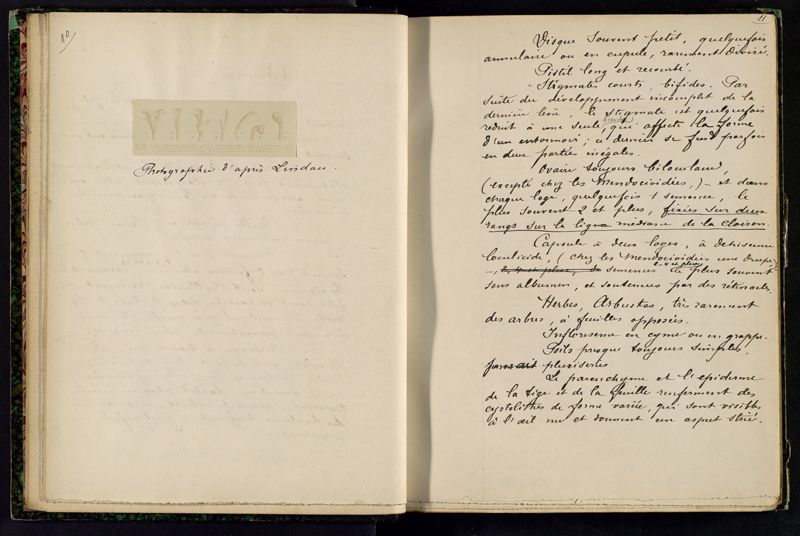 10
Photographie d'après Lindau.
11
Disque souvent petit, quelquefois
annulaire ou en cupule, rarement divisé.
Pistil long et recourbé.
Stigmates courts, bifides. Par
suite du développement incomplet de la
dernière loge, le stigmate est quelquefois
réduit à une seule, qui affecte la forme
d'un entonnoir; ce dernier se fend parfois
en deux parties inégales.
Ovaire toujours biloculaire,
(excepté chez les Mendocioidées,) - et dans
chaque loge, quelquefois 1 semence, le
plus souvent 2 et plus, fixées sur deux
rangs sur la ligne médiane de la cloison.
Capsule à deux loges, à déhiscence
loculicide, (chez les Mendocioidées une drupe)
2-4 et plus
-, semences le plus souvent
sans albumen, et soutenues par des rétinacles.
Herbes, Arbustes, très rarement
des arbres, à feuilles opposées.
Inflorescence en cyme ou en grappe.
Poils presque toujours simples,
jamais pluriseriés
Le parenchyme et l'épiderme
de la tige et de la feuille renferment des
cystolithes de forme variée, qui sont visibles
à l'œil nu et donnent un aspect strié.